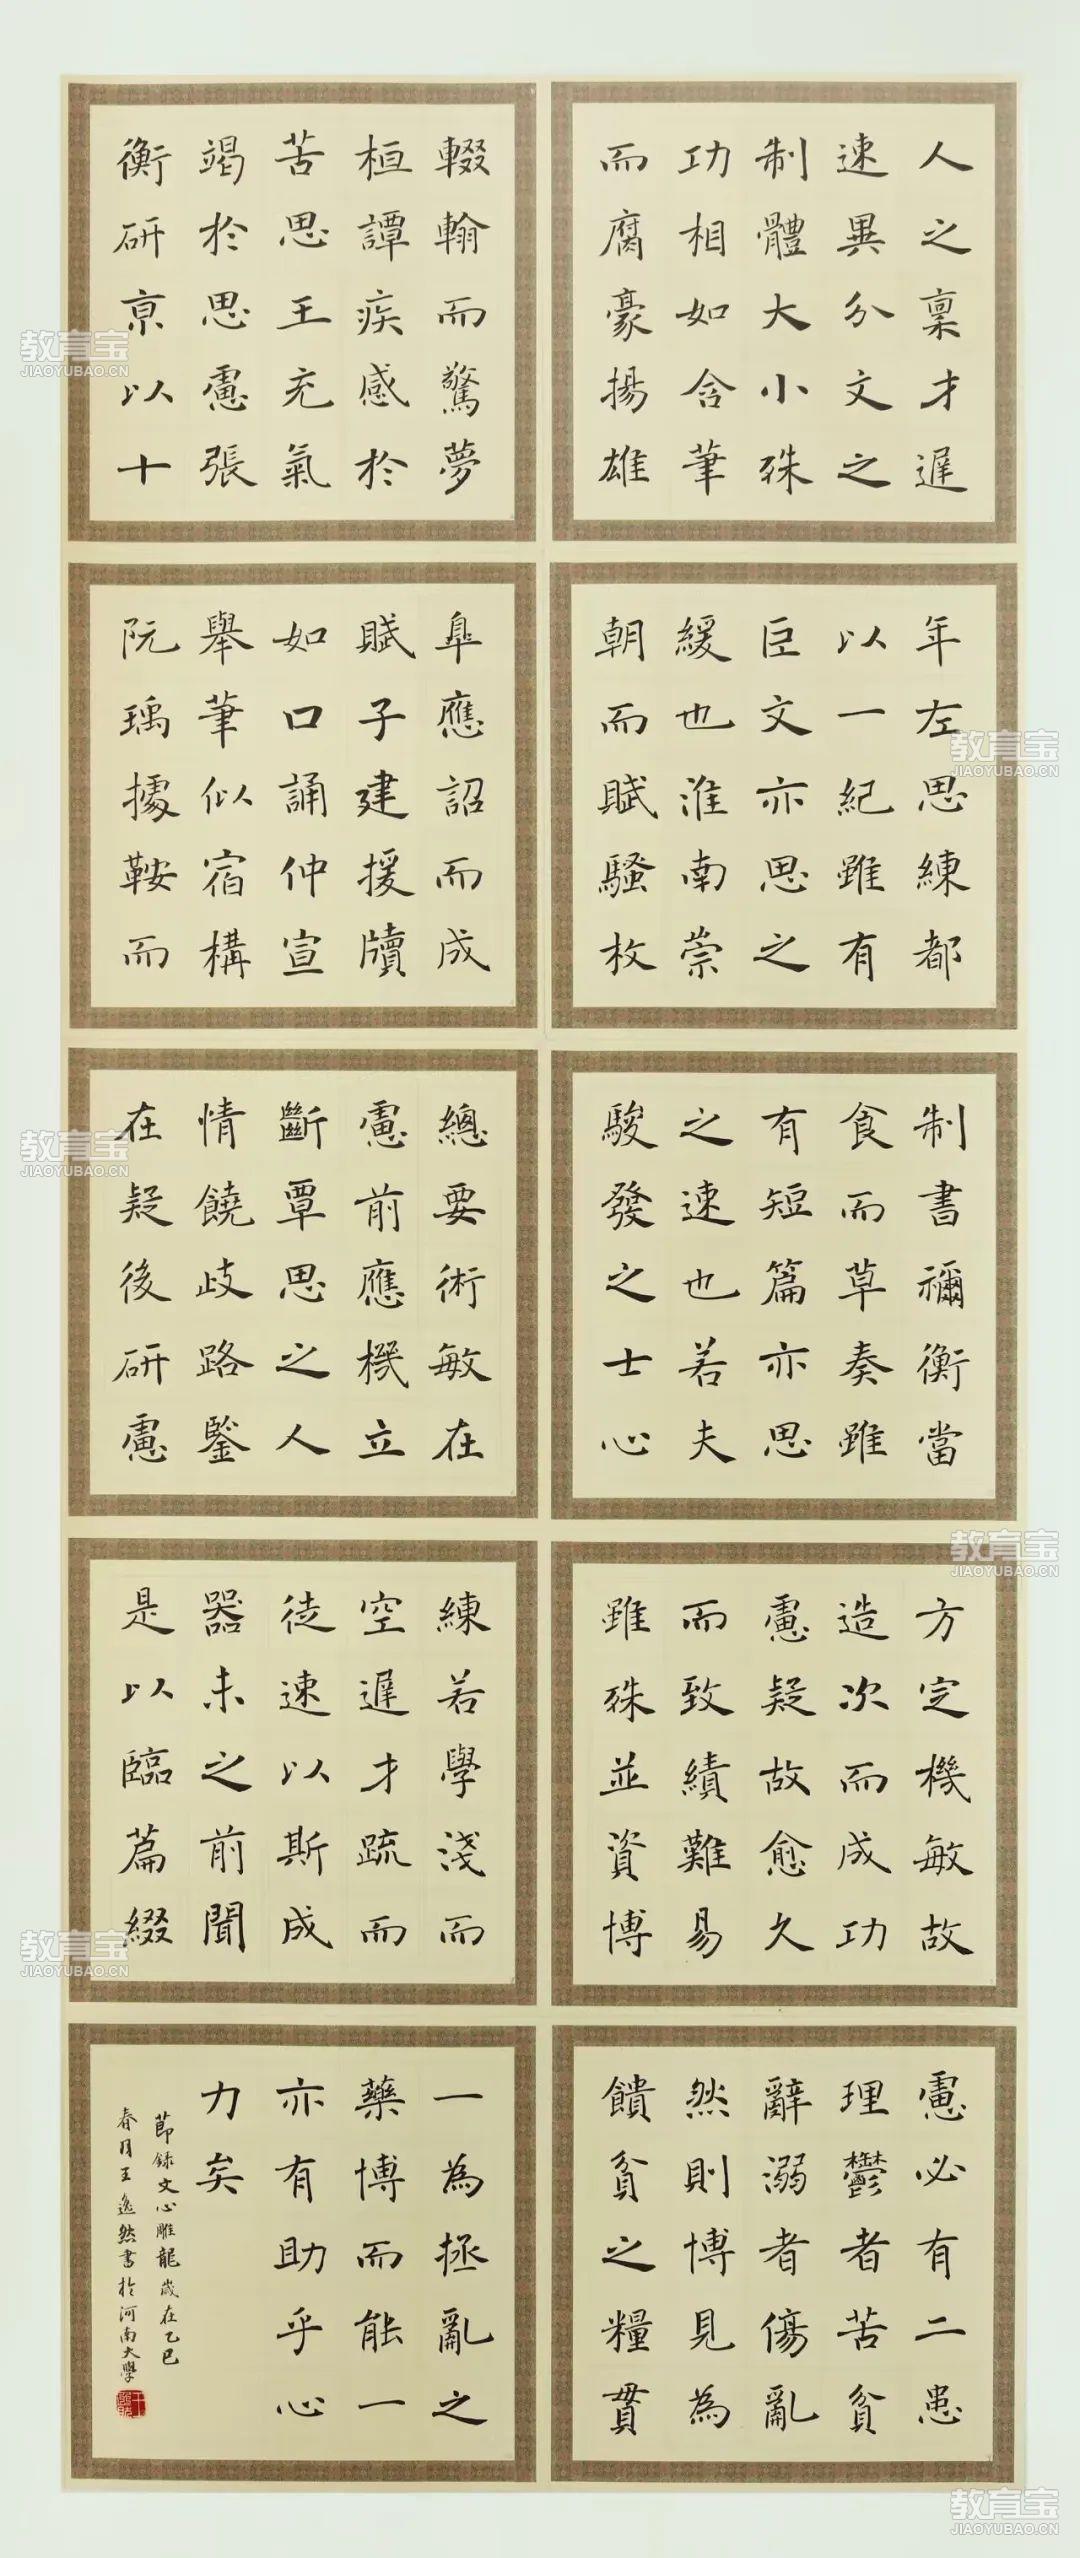 人之稟才遲
速異分文之
制體大小殊
功相如含筆
而腐豪揚雄
輟翰而驚夢
桓譚疾感於
苦思王充氣
竭於思慮張
衡研京以十
年左思練都
以一紀雖有
巨文亦思之
緩也淮南崇
朝而賦騷枚
皐應詔而成
賦子建援牘
如口誦仲宣
舉筆似宿構
阮瑀據鞍而
制書禰衡當
食而草奏雖
有短篇亦思
之速也若夫
駿發之士心
總要術敏在
慮前應機立
斷覃思之人
情饒歧路鑒
在疑後研慮
方定機敏故
造次而成功
慮疑故愈久
而致績難易
雖殊並資博
練若學淺而
空遲才疏而
徒速以斯成
器未之前聞
是以臨篇綴
慮必有二患
理鬱者苦貧
辭溺者傷亂
然則博見為
饋貧之糧貫
一為拯亂之
藥博而能一
亦有助乎心
力矣
節錄文心雕龍歲在乙巳
春月王逸然書於河南大學
教育宝
JIAOYUBAO.CN
教育宝
JIAOYUBAO.CN
教育宝
JIAOYUBAO.CN
教育宝
JIAOYUBAO.CN
教育宝
JIAOYUBAO.CN
教育宝
JIAOYUBAO.CN